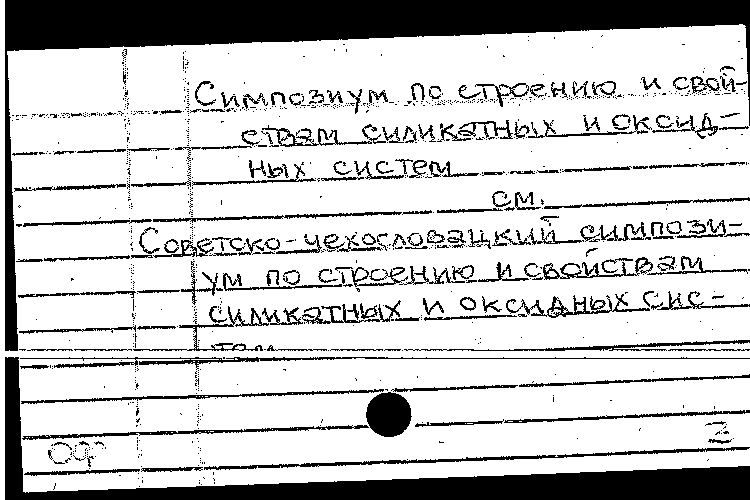 Симпозиум по строению и свой-
ствам силикатных и оксид-
ных систем
см.
Советско-чехословацкий симпози-
ум по строению и свойствам
силикатных и оксидных сис-
тем